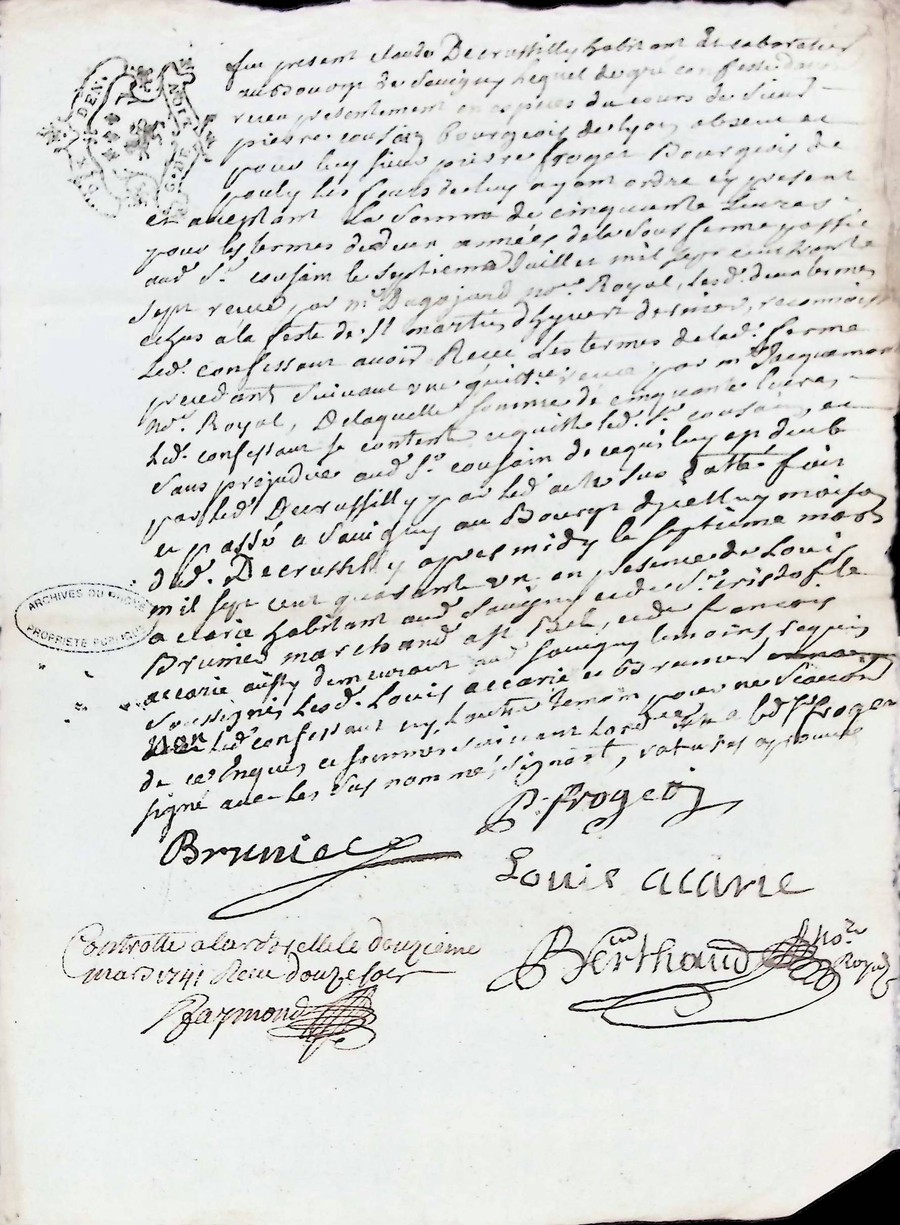 DEN.
G. DE
fut present claude Decrussilly habitant et laboureur
au bourg de Savigny lequel de gré confesse d'avoir
receu presentement en especes du cours de Sieur
pierre cousain bourgeois de lyon absent et
pour luy sieur pierre froget Bourgeois de
les cours de luy ayant ordre cy present
et acceptant La Somme de cinquante Livres
pour les termes de deux années de la Sous ferme passée
aud. Sr. cousain le Septieme Juillet mil Sept cent trante
Sept receue par me. no.re Royal, Lesd. deux termes
echus a la feste de St martin d'hyvert dernier, reconnois
Led. confessant avoir Receu Les termes de lad. ferme
precedant Suivant une quitt.ce receue par me. Jacquemont
no.re Royal, De laquelle Somme de cinquante livres,
Led. confessant se contente et quitte led. Sr. cousain, et
Sans prejudice aud. Sr. cousain de ce qui luy est deub
par led. Decrussilly par led. acte Sus datté fait
et passé a Savigny au Bourg d'icelluy maison
dud. Decrussilly apres midy le Septieme mars
mil Sept cent quarante un en presence de Louis
accarie habitant aud. Savigny et de Sr. cristofle
Brunier marchand a St bel, et de francois
accarie aussy demeurant aud. Savigny temoins requis
Soussignés Lesd. Louis accarie et Brunier
non led. confessant ny l'autre temoin pour ne Scavoir
de ce Enquis et Sommés Suivant Lord.ce a led. Sr. froget
signé avec les Sus nommés Signant, ratures approuvé
ARCHIVES DU RHÔNE
PROPRIETE PUBLIQUE
P. froget
Brunier
Louis acarie
Controllé a larbrelle le douzieme
mars 1741 Receu douze sols
Raymond
Berthaud no.re
Royal